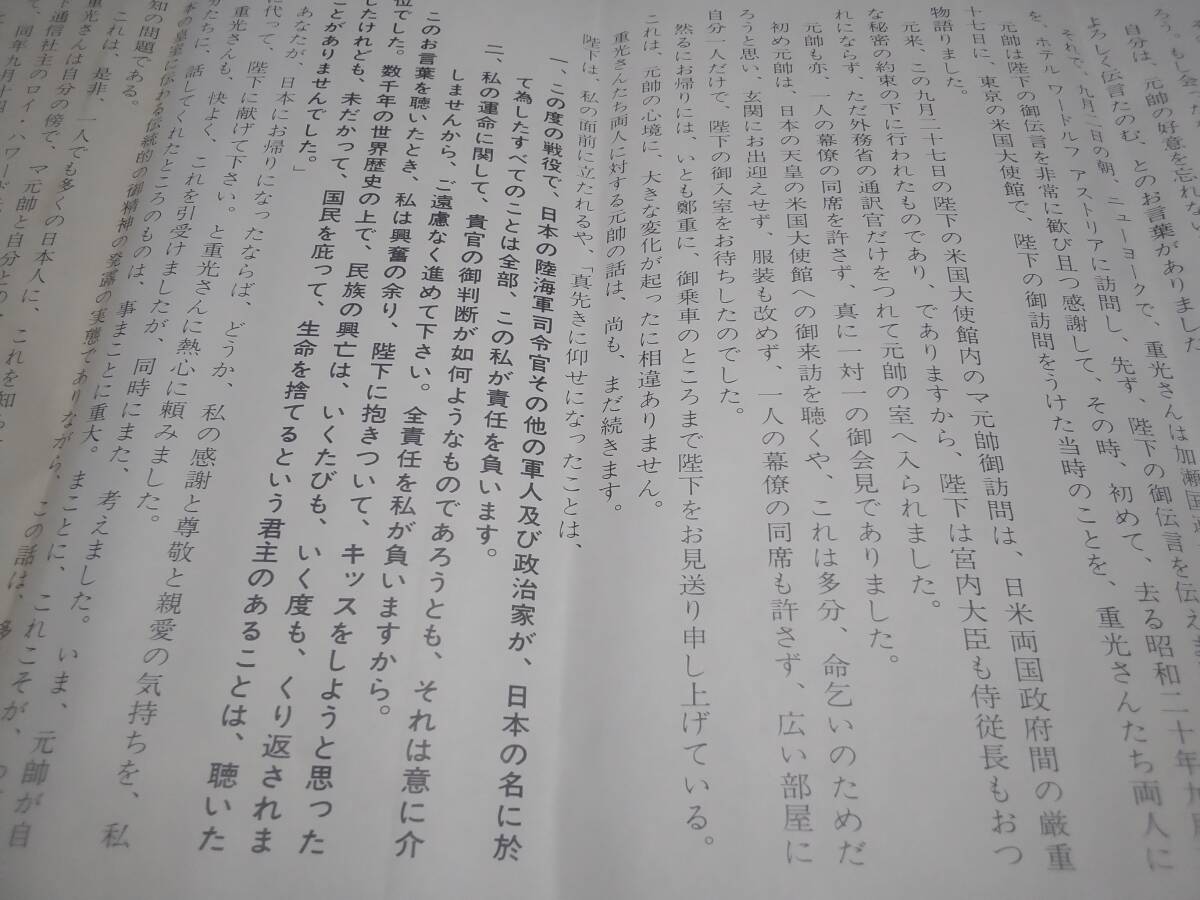 ろう。もし会
自分は、元帥の好意を忘れない
よろしく伝言たのむ、とのお言葉がありました
それで、九月二日の朝、ニューヨークで、重光さんは加瀬国
を、ホテル ワードルフ アストリアに訪問し、先ず、陛下の御伝言を伝えま
元帥は陛下の御伝言を非常に歓び且つ感謝して、その時、初めて、去る昭和二十年九月
十七日に、東京の米国大使館で、陛下の御訪問をうけた当時のことを、重光さんたち両人に
物語りました。
元来、この九月二十七日の陛下の米国大使館内のマ元帥御訪問は、日米両国政府間の厳重
な秘密の約束の下に行われたものであり、でありますから、陛下は宮内大臣も侍従長もおつ
れにならず、ただ外務省の通訳官だけをつれて元帥の室へ入られました。
元帥も亦、一人の幕僚の同席を許さず、真に一対一の御会見でありました。
初め元帥は、日本の天皇の米国大使館への御来訪を聴くや、これは多分、命乞いのためだ
ろうと思い、玄関にお出迎えせず、服装も改めず、一人の幕僚の同席も許さず、広い部屋に
自分一人だけで、陛下の御入室をお待ちしたのでした。
然るにお帰りには、いとも鄭重に、御乗車のところまで陛下をお見送り申し上げている。
これは、元帥の心境に、大きな変化が起ったに相違ありません。
重光さんたち両人に対する元帥の話は、尚も、まだ続きます。
陛下は、私の面前に立たれるや、「真先きに仰せになったことは、
一、この度の戦役で、日本の陸海軍司令官その他の軍人及び政治家が、日本の名に於
て為したすべてのことは全部、この私が責任を負います。
二、私の運命に関して、貴官の御判断が如何ようなものであろうとも、それは意に介
しませんから、ご遠慮なく進めて下さい。全責任を私が負いますから。
このお言葉を聴いたとき、私は興奮の余り、陛下に抱きついて、キッスをしようと思った
位でした。数千年の世界歴史の上で、民族の興亡は、いくたびも、いく度も、くり返されま
したけれども、未だかって、国民を庇って、生命を捨てるという君主のあることは、聴いた
ことがありませんでした。」
あなたが、日本にお帰りになったならば、どうか、私の感謝と尊敬と親愛の気持ちを、私
に代って、陛下に献げて下さい。と重光さんに熱心に頼みました。
重光さんも、快よく、これを引受けましたが、同時にまた、考えました。
たちに、話してくれたところのものは、事まことに重大。まことに、これこそが、
本の皇室に伝わる伝統的の御精神の発露の実態でありながら、この話は、多
知の問題である。
これは、是非、一人でも多くの日本人に、これを知ら
重光さんは自分の傍で、マ元帥と自分との
通信社主のロイ・ハワード
同年九月十四
いま、元帥が自